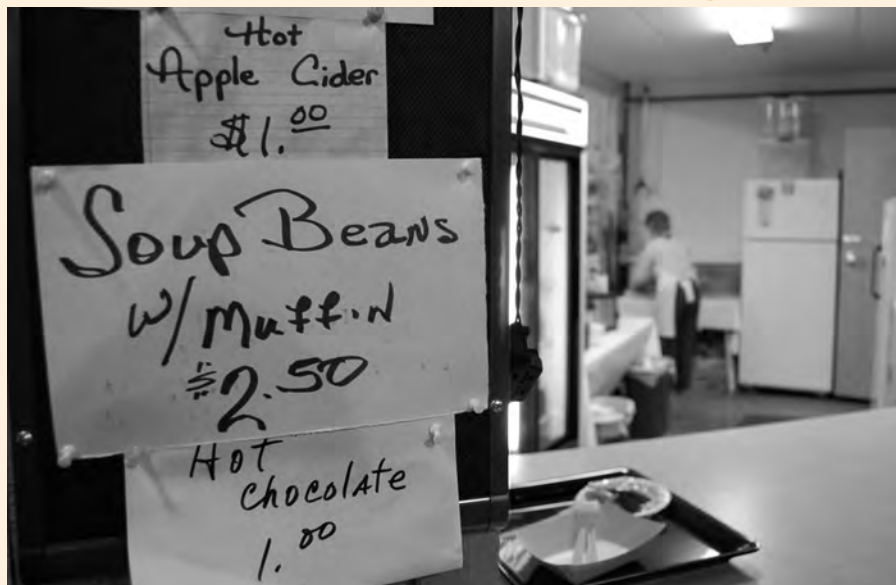 Hot
Apple Cider
$1.00
Soup Beans
w/ Muffin
$2.50
Hot
Chocolate
1.00